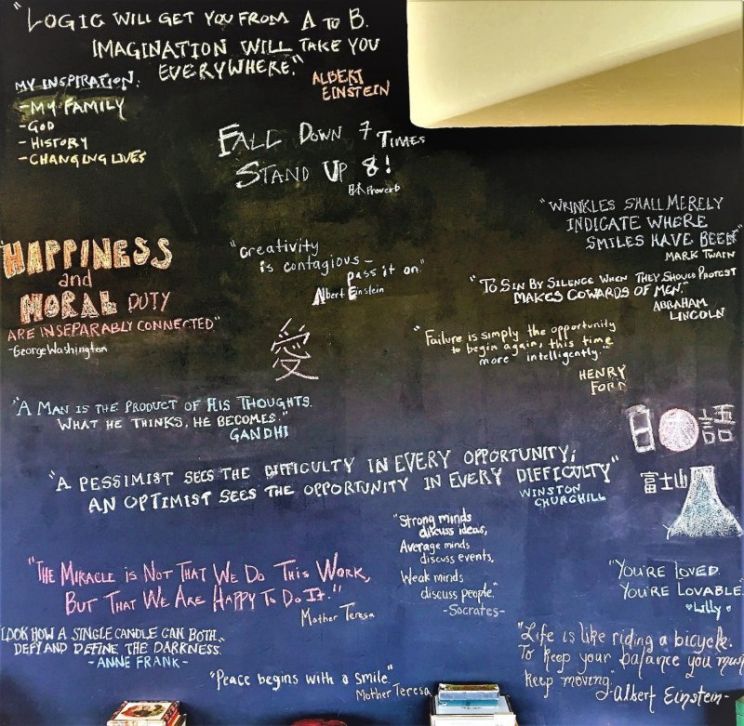 "LOGIC WILL GET YOU FROM A TO B.
IMAGINATION WILL TAKE YOU
EVERYWHERE."
ALBERT
EINSTEIN
MY INSPIRATION:
-MY FAMILY
-GOD
-HISTORY
-CHANGING LIVES
FALL DOWN 7 TIMES
STAND UP 8!
日本 Proverb
"WRINKLES SHALL MERELY
INDICATE WHERE
SMILES HAVE BEEN"
MARK TWAIN
HAPPINESS
and
MORAL DUTY
ARE INSEPARABLY CONNECTED"
-George Washington
"Creativity
is contagious-
pass it on."
Albert Einstein
"TO SIN BY SILENCE WHEN THEY SHOULD PROTEST
MAKES COWARDS OF MEN."
ABRAHAM
LINCOLN
愛
"Failure is simply the opportunity
to begin again, this time
more intelligently."
HENRY
FORD
"A MAN IS THE PRODUCT OF HIS THOUGHTS.
WHAT HE THINKS, HE BECOMES."
GANDHI
日本語
"A PESSIMIST SEES THE DIFFICULTY IN EVERY OPPORTUNITY;
AN OPTIMIST SEES THE OPPORTUNITY IN EVERY DIFFICULTY"
WINSTON
CHURCHILL
富士山
"Strong minds
discuss ideas,
Average minds
discuss events,
Weak minds
discuss people."
-Socrates-
"THE MIRACLE IS NOT THAT WE DO THIS WORK,
BUT THAT WE ARE HAPPY TO DO IT."
Mother Teresa
"YOU'RE LOVED.
YOU'RE LOVABLE."
Lilly
LOOK HOW A SINGLE CANDLE CAN BOTH
DEFY AND DEFINE THE DARKNESS.
-ANNE FRANK-
"Life is like riding a bicycle.
To keep your balance you must
keep moving."
-Albert Einstein-
"Peace begins with a smile."
Mother Teresa